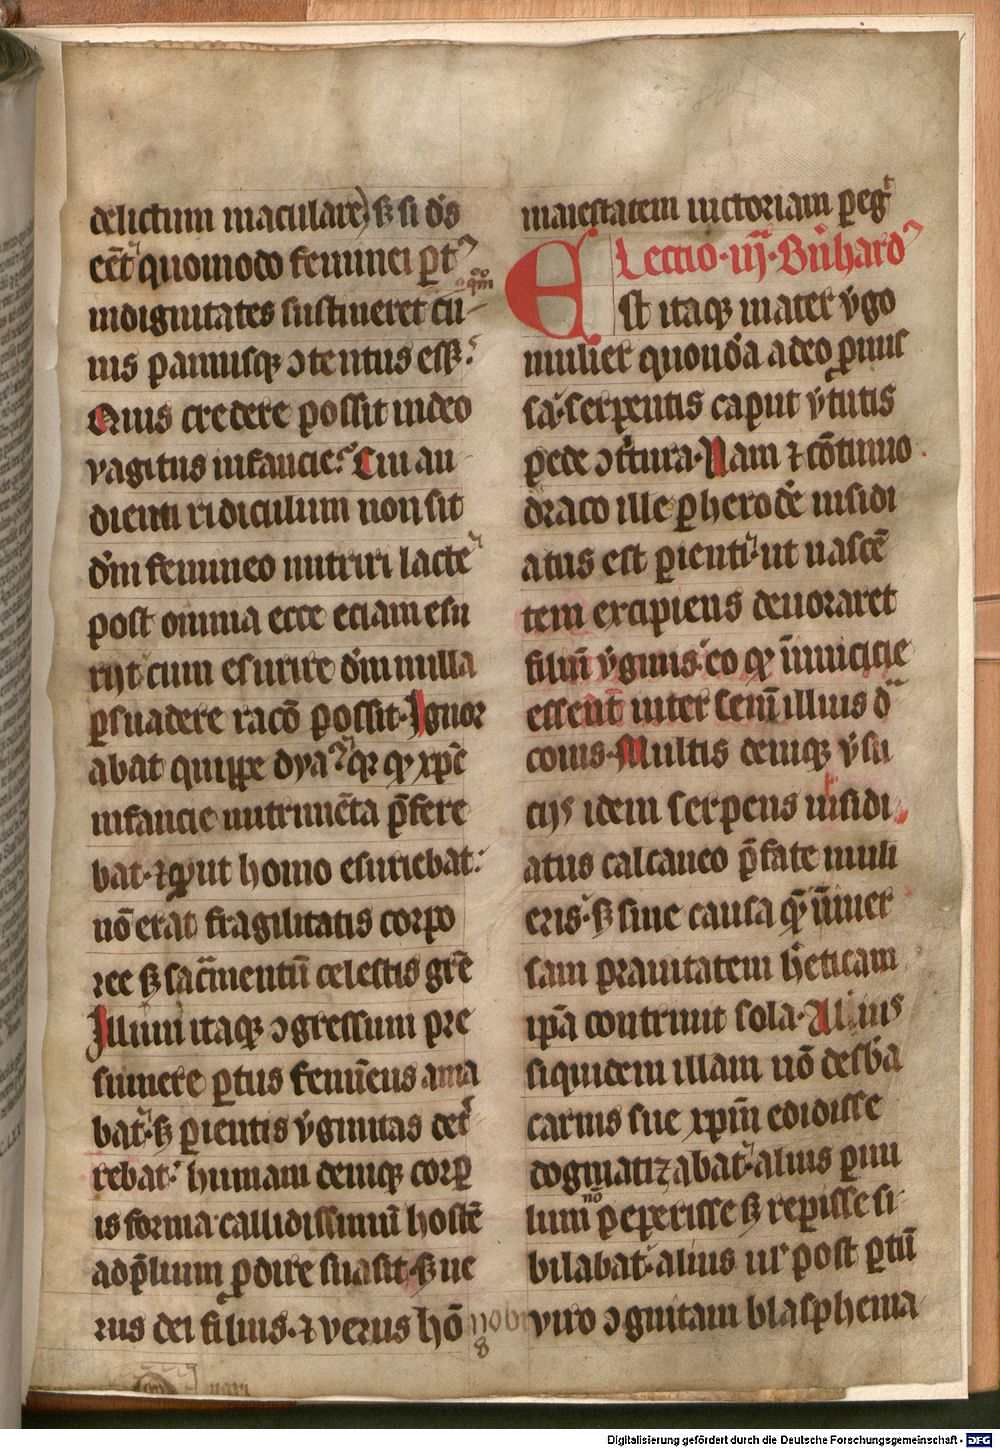 delictum maculare) sꝫ si dn̄s
eēt quomodo feminei pt
quō
indignitates sustineret cu-
nis pannisqꝫ ꝯtentus esse
Quis credere possit in deo
vagitus infancie Cui au
dienti ridiculum non sit
dm̄ femineo nutriri lacte
post omnia ecce eciam esu
rijt cum esurire dm̄ nulla
ꝑsuadere racō possit Ignor
abat quippe dya qꝫ xpē
infancie nutrimēta p̄fere
bat ⁊ ut homo esuriebat
nō erat fragilitatis corpo
ree sꝫ sac̄mentū celestis grē
Illum itaqꝫ ꝯgressum pre
sumere ꝑtus femineus ama
bat sꝫ ꝑientis v̄ginitas det
rebat humani deniqꝫ corꝑ
is forma callidissimū hostē
ad p̄lium ꝓdire suasit sꝫ ue
rus dei filius ⁊ verus hō nobi
8
maiestatem uictoriam ꝑegt
Lectio iij Bn̄hard
Est itaqꝫ mater v̄go
mulier quondā a deo ꝓmis
sa serpentis caput v̄tutis
pede ꝯt̄tura Nam ⁊ cōtinuo
draco ille ꝑ herodē insidi
atus est ꝑienti ut nascē
tem excipiens deuoraret
filiū v̄ginis eo qꝫ inimicicie
essent inter semē illius ⁊ d̄
conis Multis deniqꝫ v̄su
cijs idem serpens insidi
atus calcaneo p̄fate muli
eris sꝫ sine causa uniuer
sam prauitatem h̄eticam
ipa contriuit sola Alius
siquidem illam nō de sb̄a
carnis sue xpm̄ edidisse
dogmatizabat alius ꝑuu
nō
lum peꝑerisse sꝫ reꝑisse si
bilabat alius ul' post ꝑtū
viro ꝯgnitam blasphema